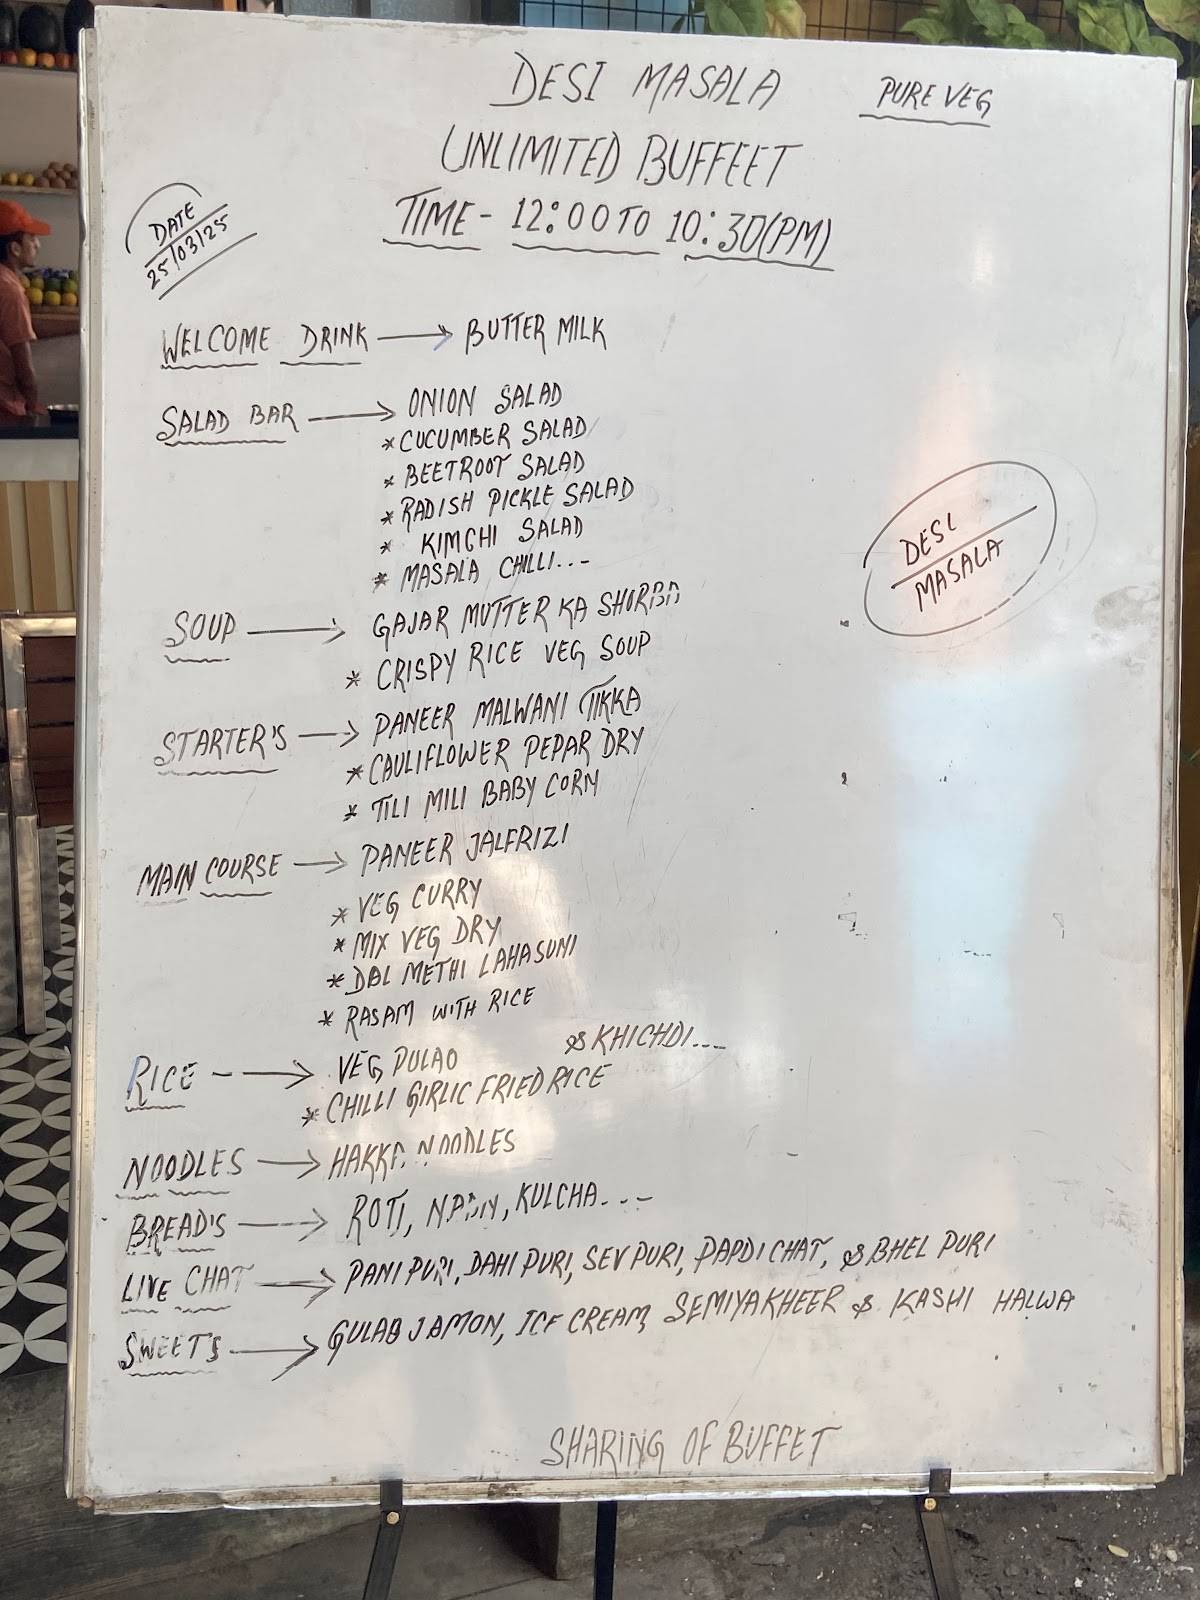 DESI MASALA
PURE VEG
UNLIMITED BUFFEET
TIME - 12:00 TO 10:30(PM)
DATE
25/03/25
WELCOME DRINK → BUTTER MILK
SALAD BAR → ONION SALAD
* CUCUMBER SALAD
* BEETROOT SALAD
* RADISH PICKLE SALAD
* KIMCHI SALAD
* MASALA CHILLI...
DESI
MASALA
SOUP → GAJAR MUTTER KA SHORBA
* CRISPY RICE VEG SOUP
STARTER'S → PANEER MALWANI TIKKA
* CAULIFLOWER PEPAR DRY
* TILI MILI BABY CORN
MAIN COURSE → PANEER JALFRIZI
* VEG CURRY
* MIX VEG DRY
* DAL METHI LAHASUNI
* RASAM WITH RICE
RICE - → VEG PULAO & KHICHDI...
* CHILLI GIRLIC FRIED RICE
NOODLES → HAKKA NOODLES
BREAD'S → ROTI, NAAN, KULCHA...
LIVE CHAT → PANI PURI, DAHI PURI, SEV PURI, PAPDI CHAT, & BHEL PURI
SWEET'S → GULAB JAMON, ICE CREAM, SEMIYA KHEER & KASHI HALWA
SHARING OF BUFFET